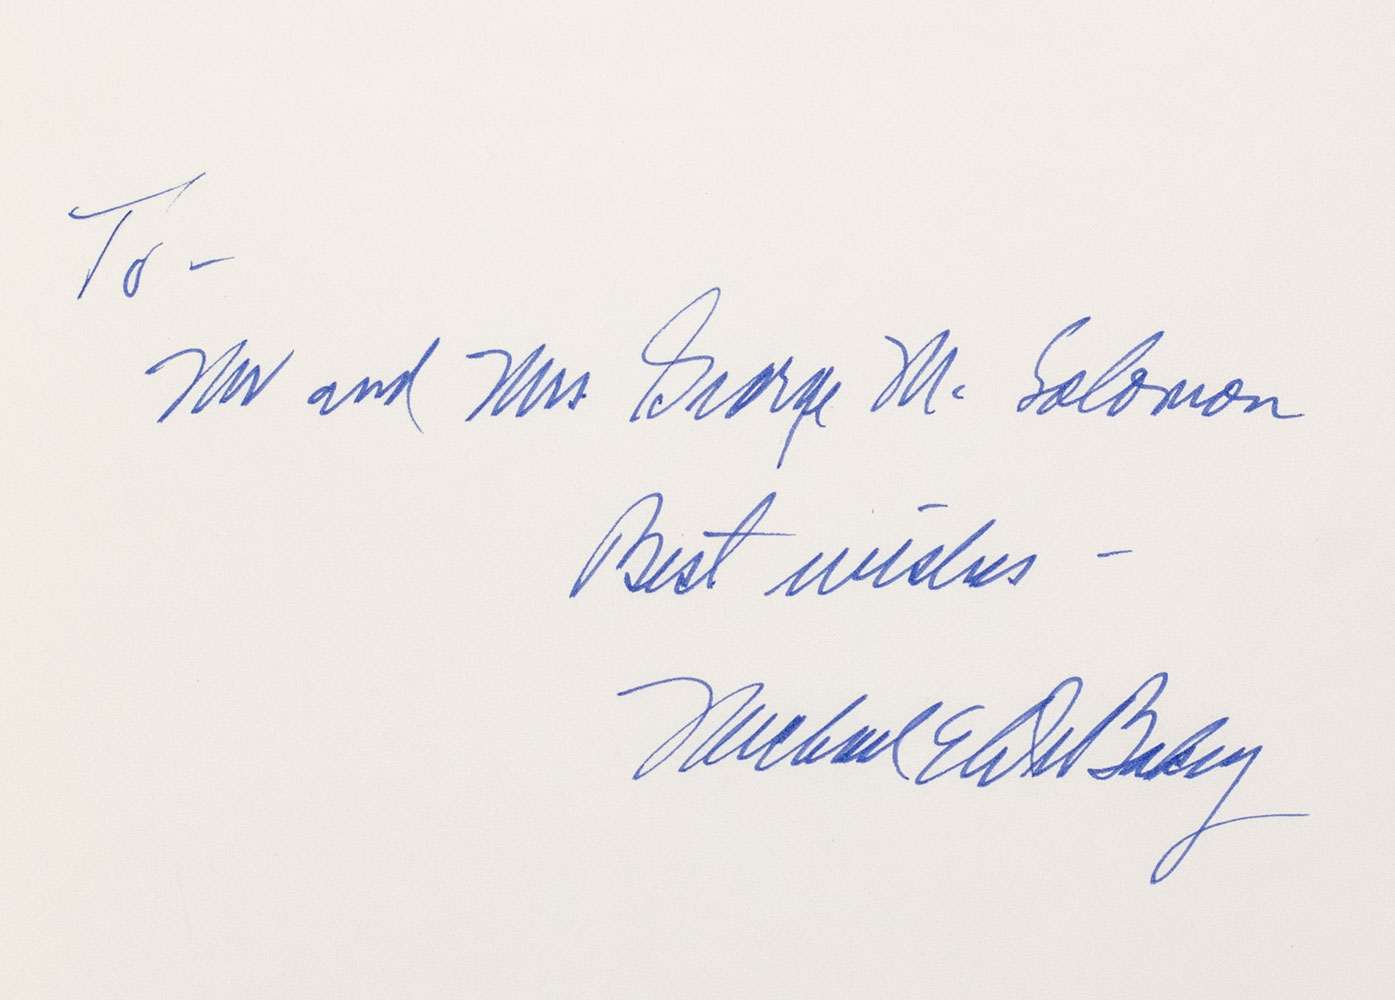 To -
Mr and Mrs. George M. Solomon
Best wishes -
Michael E. DeBakey